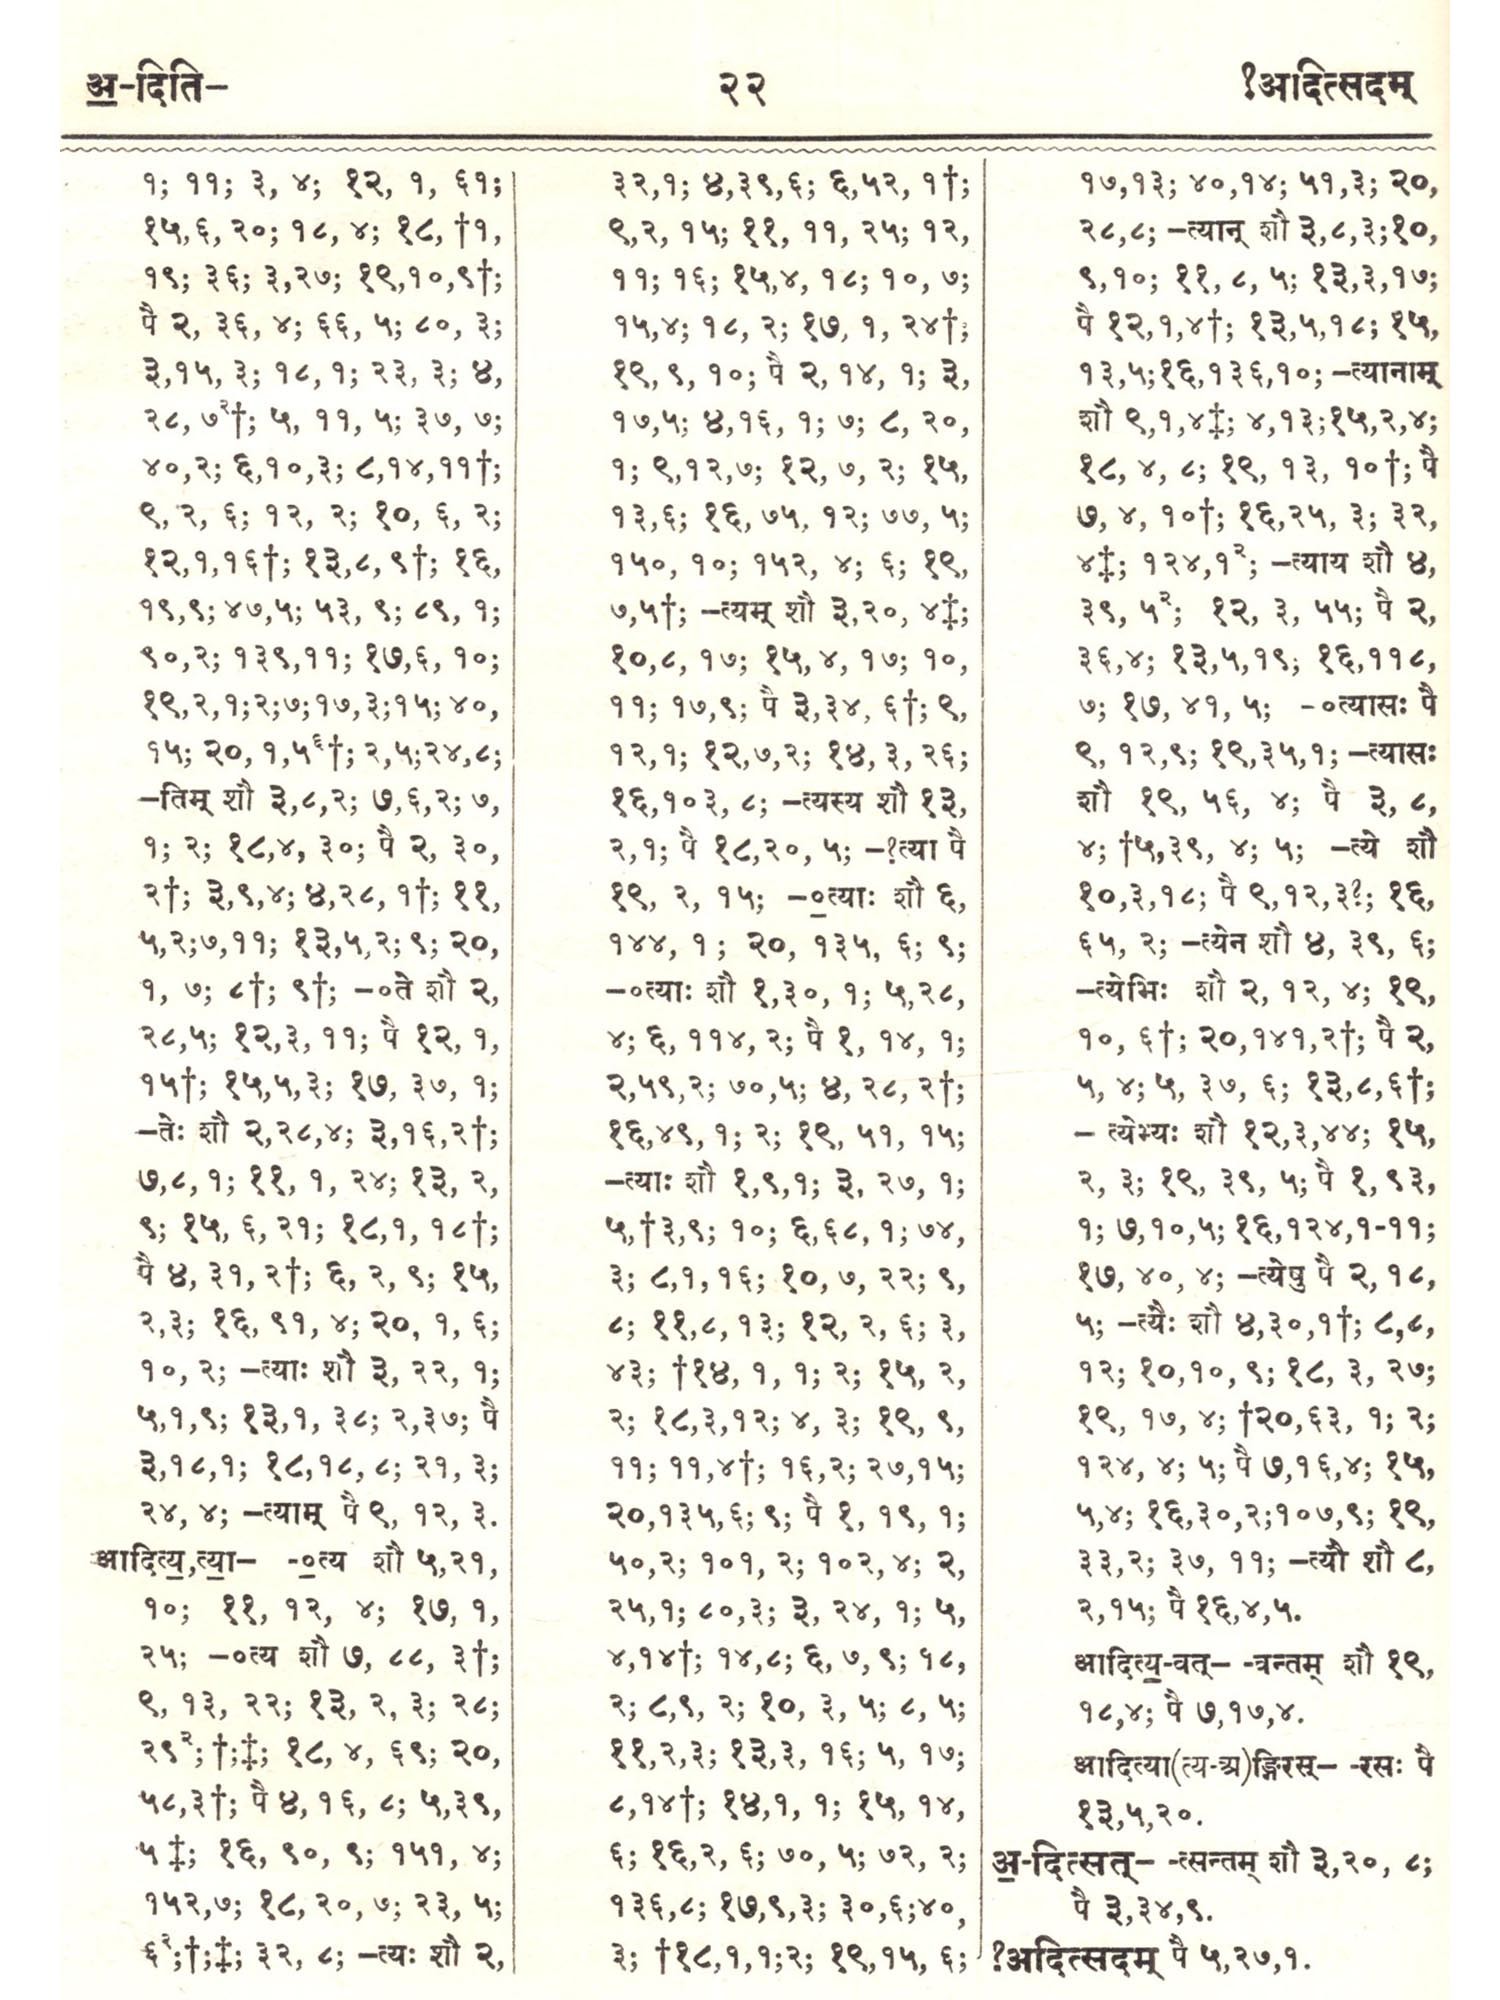 अ॒-दिति–
२२
?आदित्सदम्
१; ११; ३, ४; १२, १, ६१;
१५,६, २०; १८, ४; १८, †१,
१९; ३६; ३,२७; १९,१०,९†;
पै २, ३६, ४; ६६, ५; ८०, ३;
३,१५, ३; १८, १; २३, ३; ४,
२८, ७²†; ५, ११, ५; ३७, ७;
४०,२; ६,१०,३; ८,१४,११†;
९, २, ६; १२, २; १०, ६, २;
१२,१,१६†; १३,८, ९†; १६,
१९,९; ४७,५; ५३, ९; ८९, १;
९०,२; १३९,११; १७,६, १०;
१९,२,१;२;७;१७,३;१५; ४०,
१५; २०, १,५⁶†; २,५;२४,८;
–तिम् शौ ३,८,२; ७,६,२; ७,
१; २; १८,४, ३०; पै २, ३०,
२†; ३,९,४; ४,२८, १†; ११,
५,२;७,११; १३,५,२; ९; २०,
१, ७; ८†; ९†; –०ते शौ २,
२८,५; १२,३, ११; पै १२, १,
१५†; १५,५,३; १७, ३७, १;
–तेः शौ २,२८,४; ३,१६,२†;
७,८, १; ११, १, २४; १३, २,
९; १५, ६, २१; १८,१, १८†;
पै ४, ३१, २†; ६, २, ९; १५,
२,३; १६, ९१, ४; २०, १, ६;
१०, २; –त्याः शौ ३, २२, १;
५,१,९; १३,१, ३८; २,३७; पै
३,१८,१; १८,१८, ८; २१, ३;
२४, ४; –त्याम् पै ९, १२, ३.
आदित्य॒,त्या॒– -०॒त्य शौ ५,२१,
१०; ११, १२, ४; १७, १,
२५; –०त्य शौ ७, ८८, ३†;
९, १३, २२; १३, २, ३; २८;
२९²; †;‡; १८, ४, ६९; २०,
५८,३†; पै ४, १६, ८; ५,३९,
५ ‡; १६, ९०, ९; १५१, ४;
१५२,७; १८, २०, ७; २३, ५;
६²;†;‡; ३२, ८; –त्यः शौ २,
३२,१; ४,३९,६; ६,५२, १†;
९,२, १५; ११, ११, २५; १२,
११; १६; १५,४, १८; १०, ७;
१५,४; १८, २; १७, १, २४†;
१९, ९, १०; पै २, १४, १; ३,
१७,५; ४,१६, १; ७; ८, २०,
१; ९,१२,७; १२, ७, २; १५,
१३,६; १६, ७५, १२; ७७, ५;
१५०, १०; १५२, ४; ६; १९,
७,५†; –त्यम् शौ ३,२०, ४‡;
१०,८, १७; १५, ४, १७; १०,
११; १७,९; पै ३,३४, ६†; ९,
१२,१; १२,७,२; १४, ३, २६;
१६,१०३, ८; –त्यस्य शौ १३,
२,१; पै १८,२०, ५; –?त्या पै
१९, २, १५; –०॒त्याः शौ ६,
१४४, १; २०, १३५, ६; ९;
–०त्याः शौ १,३०, १; ५,२८,
४; ६, ११४, २; पै १, १४, १;
२,५९,२; ७०,५; ४, २८, २†;
१६,४९, १; २; १९, ५१, १५;
–त्याः शौ १,९,१; ३, २७, १;
५,†३,९; १०; ६,६८, १; ७४,
३; ८,१, १६; १०, ७, २२; ९,
८; ११,८, १३; १२, २, ६; ३,
४३; †१४, १, १; २; १५, २,
२; १८,३,१२; ४, ३; १९, ९,
११; ११,४†; १६,२; २७,१५;
२०,१३५,६; ९; पै १, १९, १;
५०,२; १०१, २; १०२, ४; २,
२५,१; ८०,३; ३, २४, १; ५,
४,१४†; १४,८; ६, ७, ९; १८,
२; ८,९, २; १०, ३, ५; ८, ५;
११,२,३; १३,३, १६; ५, १७;
८,१४†; १४,१, १; १५, १४,
६; १६,२, ६; ७०, ५; ७२, २;
१३६,८; १७,९,३; ३०,६;४०,
३; †१८,१,१;२; १९,१५, ६;
१७,१३; ४०,१४; ५१,३; २०,
२८,८; –त्यान् शौ ३,८,३;१०,
९,१०; ११, ८, ५; १३,३,१७;
पै १२,१,४†; १३,५,१८; १५,
१३,५;१६,१३६,१०; –त्यानाम्
शौ ९,१,४‡; ४,१३;१५,२,४;
१८, ४, ८; १९, १३, १०†; पै
७, ४, १०†; १६,२५, ३; ३२,
४‡; १२४,१²; –त्याय शौ ४,
३९, ५²; १२, ३, ५५; पै २,
३६,४; १३,५,१९; १६,११८,
७; १७, ४१, ५; -०त्यासः पै
९, १२,९; १९,३५,१; –त्यासः
शौ १९, ५६, ४; पै ३, ८,
४; †५,३९, ४; ५; –त्ये शौ
१०,३,१८; पै ९,१२,३?; १६,
६५, २; –त्येन शौ ४, ३९, ६;
–त्येभिः शौ २, १२, ४; १९,
१०, ६†; २०,१४१,२†; पै २,
५, ४; ५, ३७, ६; १३,८,६†;
– त्येभ्यः शौ १२,३,४४; १५,
२, ३; १९, ३९, ५; पै १, ९३,
१; ७,१०,५; १६,१२४,१-११;
१७, ४०, ४; –त्येषु पै २, १८,
५; –त्यैः शौ ४,३०,१†; ८,८,
१२; १०,१०, ९; १८, ३, २७;
१९, १७, ४; †२०,६३, १; २;
१२४, ४; ५; पै ७,१६,४; १५,
५,४; १६,३०,२;१०७,९; १९,
३३,२; ३७, ११; –त्यौ शौ ८,
२,१५; पै १६,४,५.
आदित्य॒-वत्– -त्रन्तम् शौ १९,
१८,४; पै ७,१७,४.
आदित्या(त्य-अ)ङ्गिरस्– -रसः पै
१३,५,२०.
अ॒-दित्सत्– -त्सन्तम् शौ ३,२०, ८;
पै ३,३४,९.
?अदित्सदम् पै ५,२७,१.